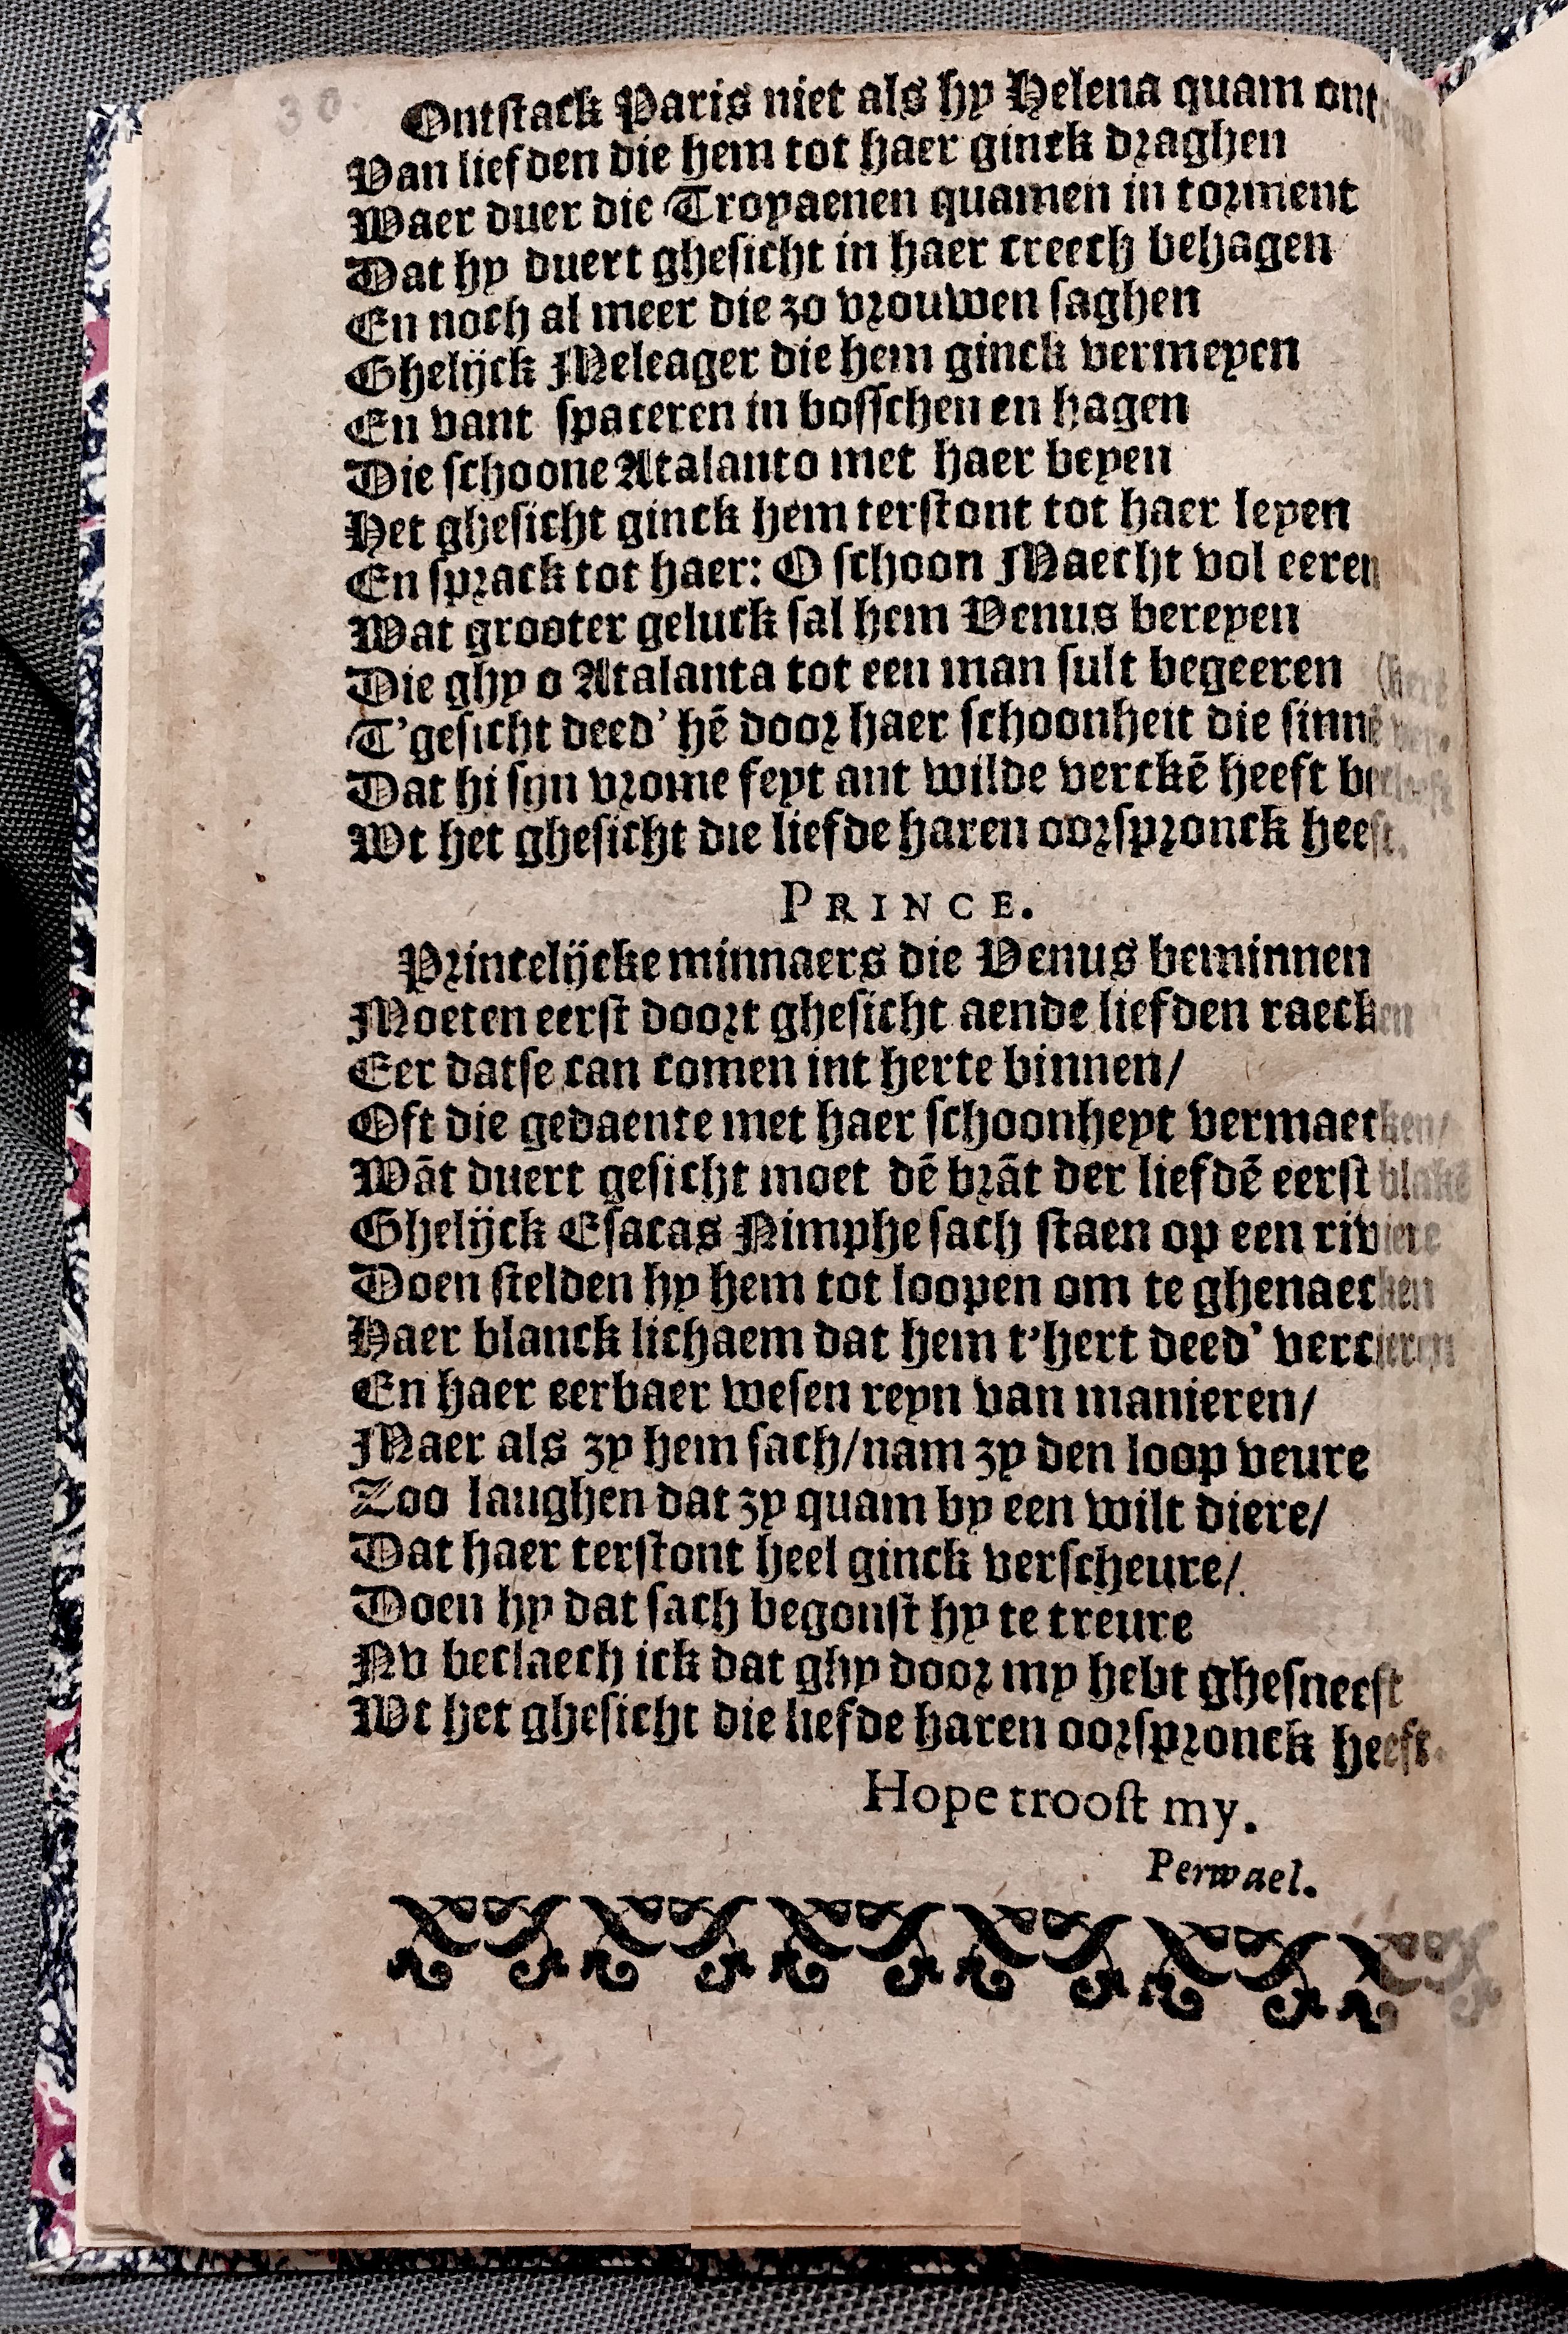 30.
Ontstack Paris niet als hy Helena quam ont
Van liefden die hem tot haer ginck draghen
Waer duer die Troyaenen quamen in torment
Dat hy duert ghesicht in haer creech behagen
En noch al meer die zo vrouwen saghen
Ghelijck Meleager die hem ginck vermeyen
En vant spaceren in bosschen en hagen
Die schoone Atalanto met haer beyen
Het ghesicht ginck hem terstont tot haer leyen
En sprack tot haer: O schoon Maecht vol eeren
Wat grooter geluck sal hem Venus bereyen
Die ghy o Atalanta tot een man sult begeeren
T'gesicht deed' hē door haer schoonheit die sinnē ver- (kerē
Dat hi sijn vrome feyt ant wilde verckē heeft beleeft
Wt het ghesicht die liefde haren oorspronck heeft.
PRINCE.
Princelijcke minnaers die Venus beminnen
Moeten eerst doort ghesicht aende liefden raecken
Eer datse can comen int herte binnen/
Oft die gedaente met haer schoonheyt vermaecken/
Wāt duert gesicht moet dē brāt der liefdē eerst blakē
Ghelijck Esacas Nimphe sach staen op een riviere
Doen stelden hy hem tot loopen om te ghenaecken
Haer blanck lichaem dat hem t'hert deed' vercieren
En haer eerbaer wesen reyn van manieren/
Maer als zy hem sach/nam zy den loop veure
Zoo laughen dat zy quam by een wilt diere/
Dat haer terstont heel ginck verscheure/
Doen hy dat sach begonst hy te treure
Nv beclaech ick dat ghy door my hebt ghesneeft
Wt het ghesicht die liefde haren oorspronck heeft.
Hope troost my.
Perwael.